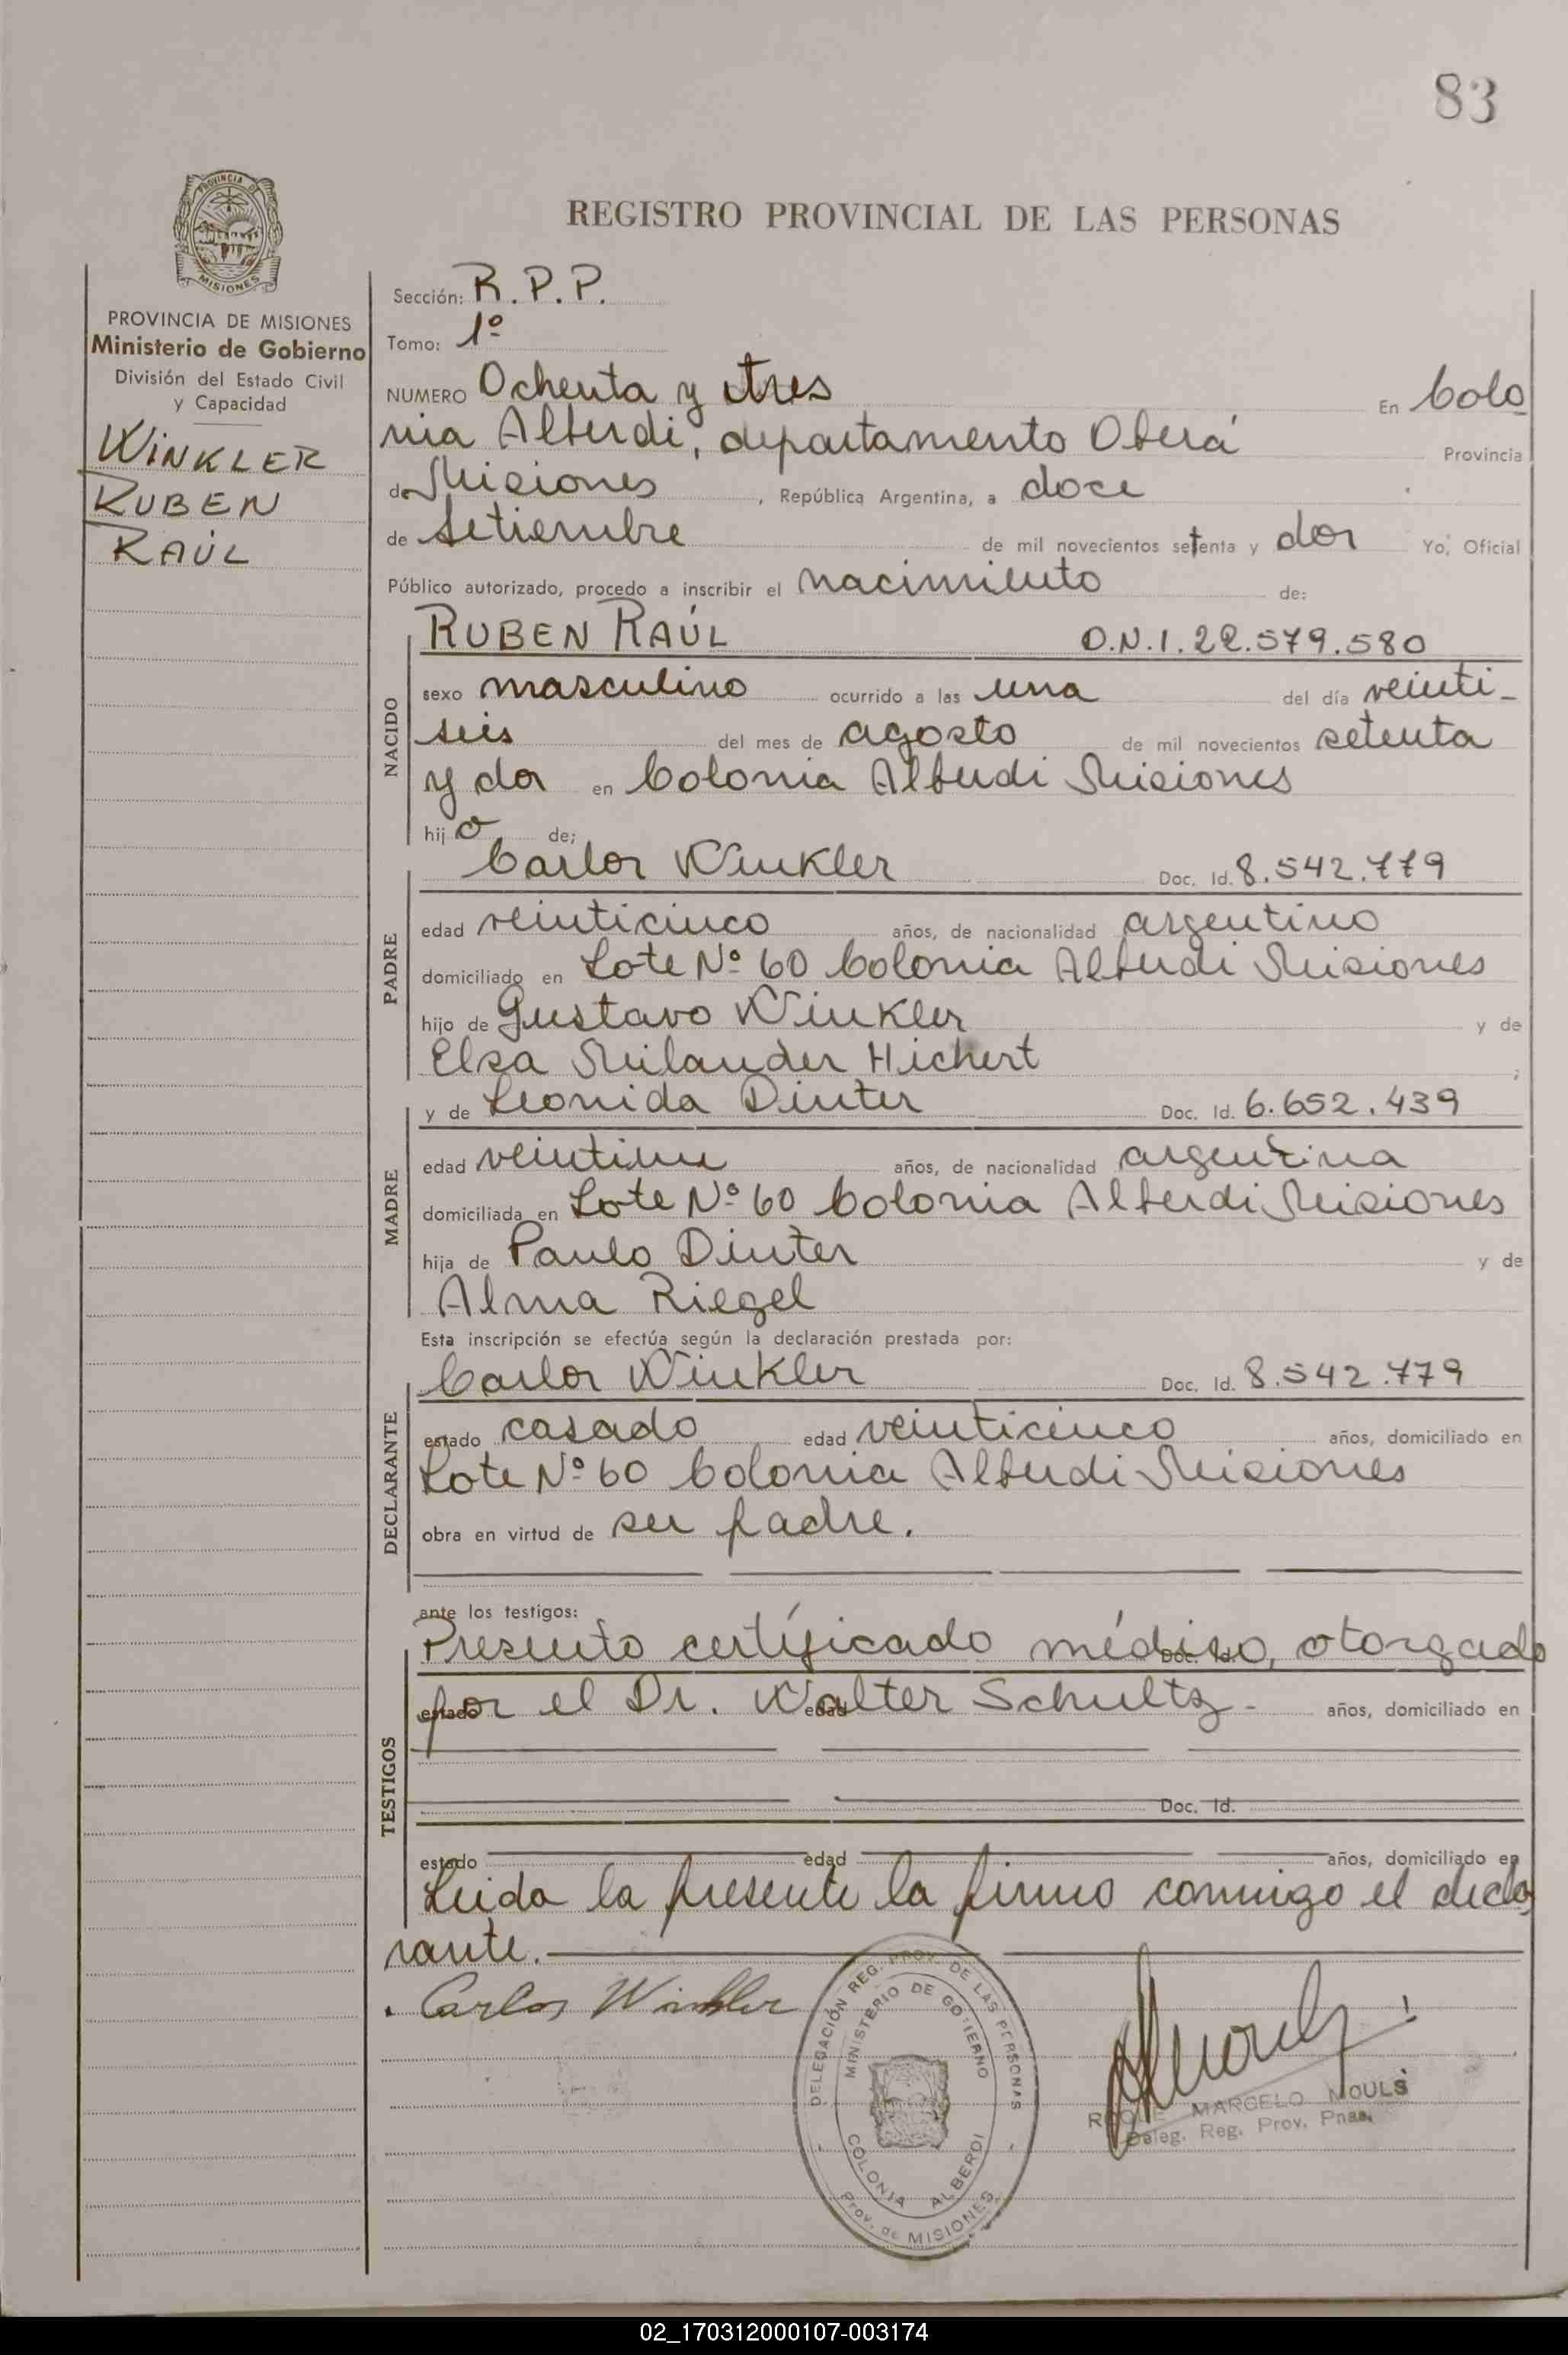 83
PROVINCIA DE
MISIONES
REGISTRO PROVINCIAL DE LAS PERSONAS
PROVINCIA DE MISIONES
Ministerio de Gobierno
División del Estado Civil
y Capacidad
WINKLER
RUBEN
RAÚL
Sección: R.P.P.
Tomo: 1º
NUMERO Ochenta y tres En Colo
nia Alberdi, departamento Oberá Provincia
de Misiones, República Argentina, a doce
de setiembre de mil novecientos setenta y dos Yo, Oficial
Público autorizado, procedo a inscribir el nacimiento de:
RUBEN RAÚL D.N.I. 22.579.580
NACIDO
sexo masculino ocurrido a las una del día veinti-
seis del mes de agosto de mil novecientos setenta
y dos en Colonia Alberdi Misiones
hijo de;
Carlos Winkler Doc. Id. 8.542.779
PADRE
edad veinticinco años, de nacionalidad argentino
domiciliado en Lote Nº 60 Colonia Alberdi Misiones
hijo de Gustavo Winkler y de
Elsa Milander Hichert ;
y de Leonida Dinter Doc. Id. 6.652.439
MADRE
edad veintiun años, de nacionalidad argentina
domiciliada en Lote Nº 60 Colonia Alberdi Misiones
hija de Paulo Dinter y de
Alma Riegel
Esta inscripción se efectúa según la declaración prestada por:
Carlos Winkler Doc. Id. 8.542.779
DECLARANTE
estado casado edad veinticinco años, domiciliado en
Lote Nº 60 Colonia Alberdi Misiones
obra en virtud de ser padre.
ante los testigos:
Presento certificado médico, otorgado Doc. Id.
estado por el Dr. Walter Schultz - edad años, domiciliado en
TESTIGOS
Doc. Id.
estado edad años, domiciliado en
Leida la presente la firmo conmigo el decla
rante.
Carlos Winkler
DELEGACIÓN REG. PROV. DE LAS PERSONAS
MINISTERIO DE GOBIERNO
COLONIA ALBERDI
Prov. de MISIONES
MARCELO MOULS
Deleg. Reg. Prov. Pnas.
02_170312000107-003174